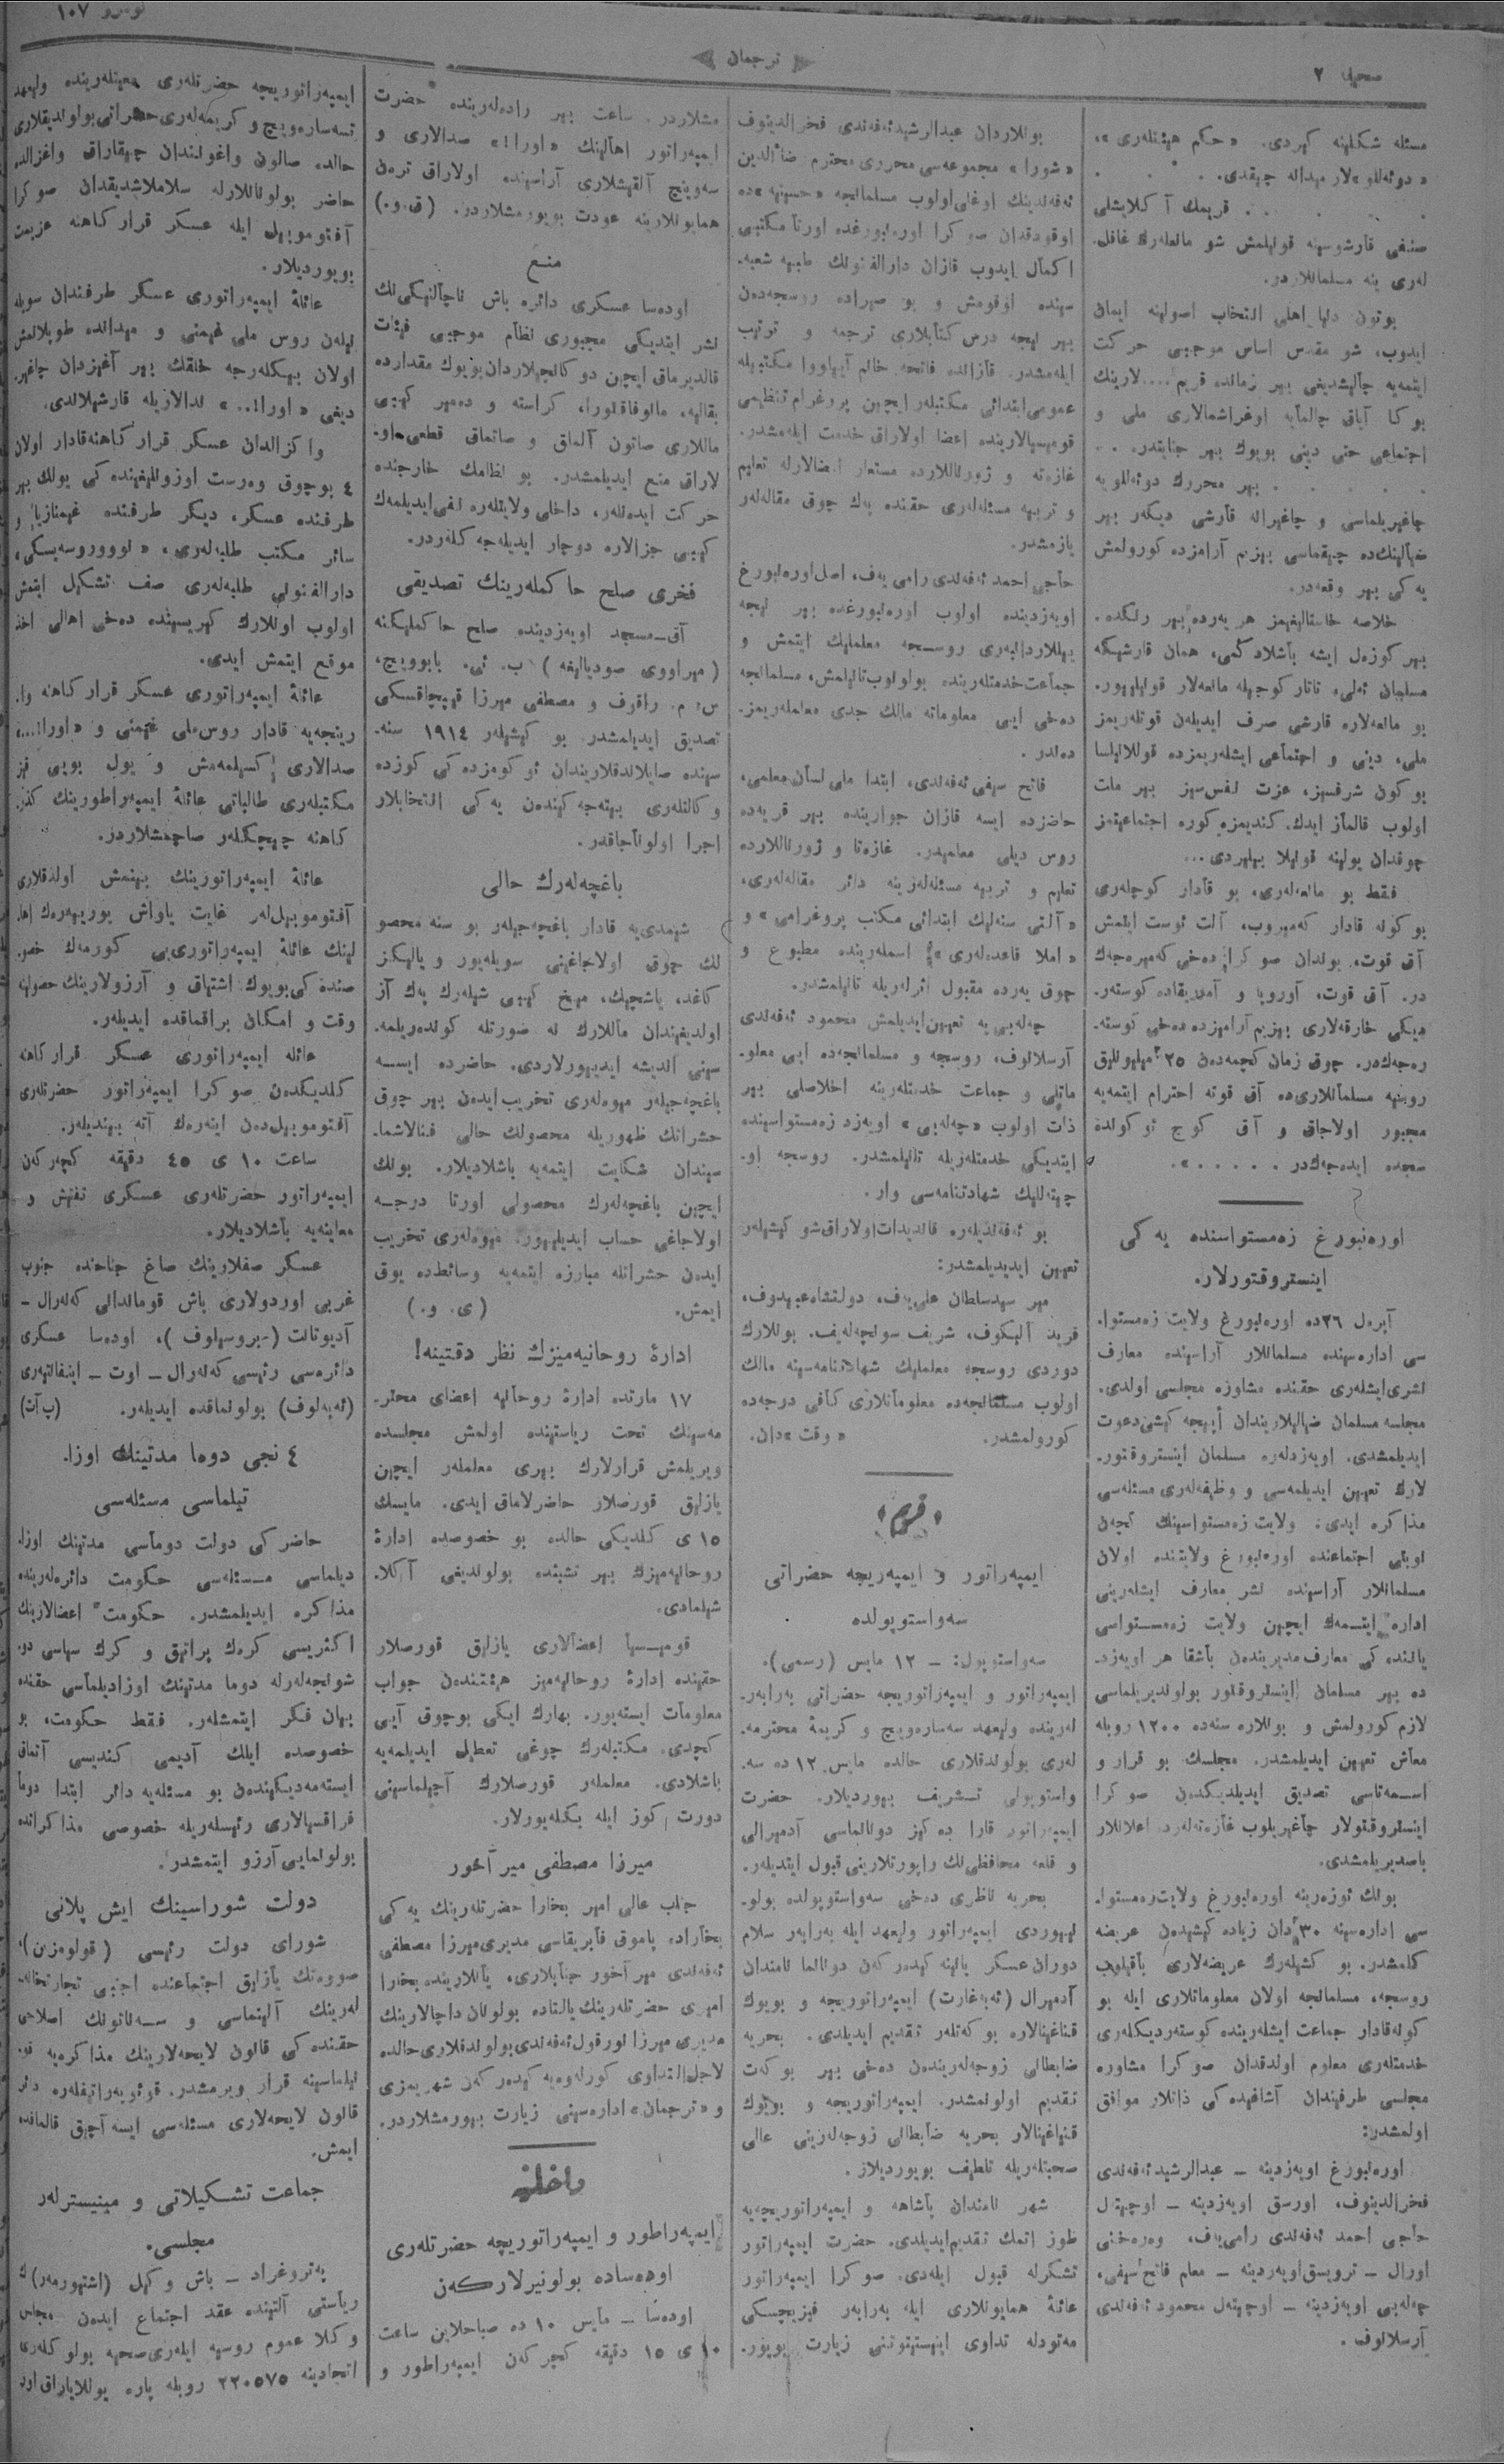 صحیفه ۲
ترجمان
نومرو ۱۰۷
مسئله شكلینه كیردی. «حكم هیئتلەری»،
«دوئەللو»لار میدانه چیقدی. . .
. . . . . قریمك آكلایشلی
صنفی قارشوسینه قویلمش شو مانعلەرك غافل-
لەری ینه مسلمانلاردر.
بوتون دنیا اهلی انتخاب اصولینه ایمان
ایدوب، شو مقدس اساس موجبی حركت
ایتمەیه چالیشدیغی بیر زمانده قریم....لارینك
بوكا آیاق چالمایه اوغراشمالاری ملی و
اجتماعی حتی دینی بویوك بیر جنایتدر. . .
. . . . . بیر محررك دوئەللویه
چاغیریلماسی و چاغیرانه قارشی دیكەر بیر
ضیالینكده چیقماسی بیزیم آرامزده كورولمش
یەكی بیر وقعەدر.
خلاصه خاستالیغیمز هر یەردە بیر رنكده.
بیر كوزەل ایشه باشلادكمی، همان قارشیكه
مسلیمان ئەلی، تاتار كوجیله مانعەلار قویلییور.
بو مانعەلارە قارشی صرف ایدیلەن قوتلەریمز
ملی، دینی و اجتماعی ایشلەریمزده قوللانیلسا
بوكون شرفسیز، عزت نفس‌سیز بیر ملت
اولوب قالماز ایدك. كندیمزه كوره اجتماعیتمز
چوقدان یولینه قویلا بیلیردی...
فقط بو مانعەلەری، بو قادار كوچلەری
بوكونه قادار كەمیروب، آلت ئوست ایتمش
آق قوت، بوندان صوكرا دەخی كەمیرەجەك
در. آق قوت، آوروپا و آمریقاده كوستەر-
دیكی خارقەلاری بیزیم آرامیزده دەخی كوستە-
رەجەكدر. چوق زمان كچمەدەن ۲۵ میلیونلق
روسیه مسلمانلاری‌ده آق قوته احترام ایتمەیه
مجبور اولاجاق و آق كوچ ئوكونده
سجده ایدەجەكدر . . . . . ».
اورەنبورغ زەمستواسنده یەكی
اینستروقتورلار.
آپرەل ۲۶ده اورەنبورغ ولایت زەمستوا-
سی ادارەسینده مسلمانلار آراسینده معارف
نشری‌ایشلەری حقنده مشاوره مجلسی اولدی.
مجلسه مسلمان ضیالیلاریندان آنیجه كیشی‌دعوت
ایدیلمشدی. اویەزدلەره مسلمان اینستروقتور-
لارك تعیین ایدیلمەسی و وظیفەلەری مسئلەسی
مذاكره ایدی. ولایت زەمستواسینك كچەن
نوبتی اجتماعنده اورەنبورغ ولایتنده اولان
مسلمانلار آراسینده نشر معارف ایشلەرینی
اداره ایتمەك ایچین ولایت زەمستواسی
یاننده كی معارف‌مدیریندەن باشقا هر اویەزد-
ده بیر مسلمان اینستروقتور بولوندیریلماسی
لازم كورولمش و بونلاره سنەده ۱۲۰۰ روبله
معاش تعیین ایدیلمشدر. مجلسك بو قرار و
اسمەتاسی تصدیق ایدیلدیكدەن صوكرا
اینستروقتورلار چاغیریلوب غازەتەلەرده اعلانلار
باصدیریلمشدی.
بونك ئوزەرینه اورەنبورغ ولایت‌زەمستوا-
سی ادارەسینه ۳۰دان زیاده كیشیدەن عریضه
كلمشدر. بو كشیلەرك عریضەلاری باقیلوب
روسجه، مسلمانجه اولان معلوماتلاری ایله بو
كونه‌قادار جماعت ایشلەرینده كوستەردیكلەری
خدمتلەری معلوم اولدقدان صوكرا مشاوره
مجلسی طرفیندان آشاغیده كی ذاتلار موافق
اولمشدر:
اورەنبورغ اویەزدینه – عبدالرشید ئەفەندی
فخرالدینوف، اورسق اویەزدینه – اوچیتەل
حاجی احمد ئەفەندی رامی‌یەف، وەرەخنی
اورال – ترویسق‌اویەزدینه – معلم فاتح سیفی،
چەلەبی اویەزدینه – اوچیتەل محمود ئەفەندی
آرسلانوف.
بونلاردان عبدالرشیدئەفەندی فخرالدینوف
«شورا» مجموعەسی محرری محترم ضاءالدین
ئەفەندینك اوغلی‌اولوب مسلمانجه «حسینیه»ده
اوقودقدان صوكرا اورەنبورغده اورتا مكتبی
اكمال ایدوب قازان دارالفنونك طبیه شعبە-
سینده اوقومش و بو صیراده روسجەدەن
بیر نیجه درس كتابلاری ترجمه و ترتیب
ایلەمشدر. قازانده فاتحه خانم آیتاووا مكتبیله
عمومی‌ابتدائی مكتبلەر ایچین پروغرام تنظیمی
قومیسیالارینده اعضا اولاراق خدمت ایلەمشدر.
غازەته و ژورناللارده مستعار امضالارله تعلیم
و تربیه مسئلەلەری حقنده پەك چوق مقالەلەر
یازمشدر.
حاجی احمد ئەفەندی رامی یەف، اصل‌اورەنبورغ
اویەزدینده اولوب اورەنبورغده بیر نیجه
ییللاردانبەری روسجه معلملیك ایتمش و
جماعت‌خدمتلەرینده بولونوب‌تانیلمش، مسلمانجه
دەخی ایی معلوماته مالك جدی معلملەریمز-
دەندر.
فاتح سیفی ئەفەندی، ابتدا ملی لسان‌معلمی،
حاضرده ایسه قازان جوارینده بیر قریەده
روس دیلی معلمیدر. غازەتا و ژورناللارده
تعلیم و تربیه مسئلەلەرینه دائر مقالەلەری،
«آلتی سنەلیك ابتدائی مكتب پروغرامی» و
«املا قاعدەلەری» اسملەرینده مطبوع و
چوق یەرده مقبول اثرلەریله تانیلمشدر.
چەلەبی‌یه تعیین‌ایدیلمش محمود ئەفەندی
آرسلانوف، روسجه و مسلمانجەده ایی معلو-
ماتلی و جماعت خدمتلەرینه اخلاصلی بیر
ذات اولوب «چەلەبی» اویەزد زەمستواسینده
ایتدیكی خدمتلەریله تانیلمشدر. روسجه او-
چیتەللیك شهادتنامەسی وار.
بو ئەفەندیلەره قاندیدات‌اولاراق‌شو كیشیلەر
تعیین ایدیدیلمشدر:
میر سیدسلطان علی‌یەف، دولتشاه‌عبیدوف،
فرید آلیكوف، شریف سونچەلەیف. بونلارك
دوردی روسجه معلملیك شهادتنامەسینه مالك
اولوب مسلمانجەده معلوماتلاری كافی درجەده
كورولمشدر. «وقت»دان.
قریم
ایمپەراتور و ایمپەریچه حضراتی
سەواستوپولده
سەواستوپول: – ۱۲ مایس (رسمی).
ایمپەراتور و ایمپەراتوریچه حضراتی بەرابەر-
لەرینده ولیعهد سەسارەویچ و كریمۀ محترمە-
لەری بولوندقلاری حالده مایس ۱۲ ده سە-
واستوپولی تشریف بیوردیلار. حضرت
ایمپەراتور قارا دەكیز دونانماسی آدمیرالی
و قلعه محافظی‌نك راپورتلارینی قبول ایتدیلەر.
بحریه ناظری دەخی سەواستوپولده بولو-
نییوردی ایمپەراتور ولیعهد ایله بەرابەر سلام
دوران عسكر یانینه كیدەر كەن دونانما نامندان
آدمیرال (ئەبەغارت) ایمپەراتوریچه و بویوك
قناغینالاره بوكەتلەر تقدیم ایدیلدی. بحریه
ضابطانی زوجەلەریندەن دەخی بیر بوكەت
تقدیم اولونمشدر. ایمپەراتوریجه و بویوك
قنیاغینالار بحریه ضابطانی زوجەلەرینی عالی
صحبتلەریله تلطیف بویوردیلار.
شهر نامندان پاشاهه و ایمپەراتوریچەیه
طوز اتمك تقدیم‌ایدیلدی. حضرت ایمپەراتور
تشكرله قبول ایلەدی. صوكرا ایمپەراتور
عائلۀ همایونلاری ایله بەرابەر فیزیچسكی
مەتودله تداوی اینستیتوتنی زیارت بویور-
مشلاردر. ساعت بیر رادەلەرینده حضرت
ایمپەراتور اهالینك «اورا!» صدالاری و
سەوینج آلقیشلاری آراسینده اولاراق ترەن
همایونلارینه عودت بویورمشلاردر. (ق.و.)
منع
اودەسا عسكری دائره باش ناچالنیكی‌نك
نشر ایتدیكی مجبوری نظام موجبی فیئات
قالدیرماق ایچین دوكانچیلاردان‌بویوك مقدارده
بقالیه، مانوفاقتورا، كراسته و دەمیر كیبی
ماللاری صاتون آلماق و صاتماق قطعی‌او-
لاراق منع ایدیلمشدر. بو نظامك خارجنده
حركت ایدەنلەر، داخلی ولایتلەره نفی‌ایدیلمەك
كیبی جزالاره دوچار ایدیلەجەكلەردر.
فخری صلح حاكملەرینك تصدیقی
آق‌-مسجد اویەزدینده صلح حاكملیكنه
(میراووی صودیالیغه) ب. ئی. بابوویچ،
س. م. راقوف و مصطفی میرزا قیپچاقسكی
تصدیق ایدیلمشدر. بو كیشیلەر ۱۹۱٤ سنە-
سینده صایلاندقلاریندان ئوكومزده كی كوزده
وكالتلەری بیتەجەكیندەن یەكی انتخابلار
اجرا اولوناجاقدر.
باغچەلەرك حالی
شیمدی‌یه قادار باغچەجیلەر بو سنه محصو
لك چوق اولاجاغینی سویلەیور و یالیكز
كاغد، یاشچیك، میخ كیبی شیلەرك پەك آز
اولدیغیندان ماللارك نه صورتله كوندەریلمە-
سینی اندیشه ایدییورلاردی. حاضرده ایسه
باغچەجیلەر میوەلەری تخریب‌ایدەن بیر چوق
حشراتك ظهوریله محصولك حالی فنالاشما-
سیندان شكایت ایتمەیه باشلادیلار. بونك
ایچین باغچەلەرك محصولی اورتا درجه
اولاجاغی حساب ایدیلییور. میوەلەری تخریب
ایدەن حشراتله مبارزه ایتمەیه وسائطده یوق
ایمش. (ی. و.)
ادارۀ روحانیەمیزك نظر دقتینه!
۱۷ مارتده ادارۀ روحانیه اعضای محتر-
مەسینك تحت ریاستینده اولمش مجلسده
ویریلمش قرارلارك بیری معلملەر ایچین
یازلق قورصلار حاضرلاماق‌ایدی. مایسك
۱۵ ی كلدیكی حالده بو خصوصده ادارۀ
روحانیەمیزك بیر تشبثده بولوندیغی آكلا-
شیلمادی.
قومیسیا اعضالاری یازلق قورصلار
حقینده ادارۀ روحانیەمیز هیئتندەن جواب
معلومات ایستەیور. بهارك ایكی بوچوق آیی
كچدی. مكتبلەرك چوغی تعطیل ایدیلمەیه
باشلادی. معلملەر قورصلارك آچیلماسینی
دورت كوز ایله بكلەیورلار.
میرزا مصطفی میرآخور
جناب عالی امیر بخارا حضرتلەرینك یەكی
بخاراده پاموق فابریقاسی مدیری‌میرزا مصطفی
ئەفەندی میرآخور جنابلاری، یانلارینده بخارا
امیری حضرتلەرینك یالتاده بولونان داچالارینك
مدیری میرزا نورقول‌ئەفەندی‌بولوندقلاری حالده
لاجل‌التداوی كورلەوەیه كیدەركەن شهریمزی
و «ترجمان» ادارەسینی زیارت بیورمشلاردر.
داخلیه
ایمپەراطور و ایمپەراتوریچه حضرتلەری
اودەساده بولونیرلاركەن
اودەسا – مایس ۱۰ ده صباحلاین ساعت
۱۰ی ۱۵ دقیقه كچركەن ایمپەراطور و
ایمپەراتوریچه حضرتلەری معیتلەرینده ولیعهد
تسەسارەویچ و كریمەلەری حضراتی‌بولوندیقلاری
حالده صالون واغونندان چیقاراق واغزالده
حاضر بولونانلارله سلاملاشدیقدان صوكرا
آفتوموبیل ایله عسكر قرارگاهنه عزیمت
بویوردیلار.
عائلۀ ایمپەراتوری عسكر طرفندان سویلە-
نیلەن روس ملی غیمنی و میدانده طوپلانمش
اولان بیكلەرجه خلقك بیر آغیزدان چاغیر-
دیغی «اورا!..» ندالاریله قارشیلاندی.
واكزالدان عسكر قرارگاهنه‌قادار اولان
٤ بوچوق وەرست اوزونلیغینده كی یولك بیر
طرفنده عسكر، دیكر طرفنده غیمنازیا و
سائر مكتب طلبەلەری، «نوووروسەیسكی»
دارالفنونی طلبەلەری صف تشكیل ایتمش
اولوب اونلارك كیریسینده دەخی اهالی اخذ
موقع ایتمش ایدی.
عائلۀ ایمپەراتوری عسكر قرارگاهنه وا-
رینجەیه قادار روس‌ملی غیمنی و «اورا!...»
صدالاری اكسیلمەمش و یول بویی قیز
مكتبلەری طالباتی عائلۀ ایمپەراطورینك گذر-
گاهنه چیچكلەر صاچمشلاردر.
عائلۀ ایمپەراتورینك بینمش اولدقلاری
آفتوموبیل‌لەر غایت یاواش یوریییەرەك اها-
لینك عائلۀ ایمپەراتوری‌یی كورمەك خصو-
صنده كی‌بویوك اشتیاق و آرزولارینك حصولینه
وقت و امكان براقماقده ایدیلەر.
عائله ایمپەراتوری عسكر قرارگاهنه
كلدیكدەن صوكرا ایمپەراتور حضرتلەری
آفتوموبیل‌دەن اینەرەك آته بیندیلەر.
ساعت ۱۰ی ٤٥ دقیقه كچەركەن
ایمپەراتور حضرتلەری عسكری تفتیش و
معاینەیه باشلادیلار.
عسكر صفلارینك صاغ جناحنده جنوب
غربی اوردولاری باش قوماندانی كەنەرال –
آدیوتانت (-بروسیلوف)، اودەسا عسكری
دائرەسی رئیسی كەنەرال – اوت – اینفانتیەری
(ئەبەلوف) بولونماقده ایدیلەر. (پ‌آت)
٤ نجی دوما مدتینك اوزا-
تیلماسی مسئلەسی
حاضركی دولت دوماسی مدتینك اوزا-
دیلماسی مسئلەسی حكومت دائرەلەرینده
مذاكره ایدیلمشدر. حكومت اعضالارینك
اكثریسی كرەك پراتیق و كرك سیاسی دو-
شونجەلەرله دوما مدتینك اوزادیلماسی حقنده
بیان فكر ایتمشلەر. فقط حكومت، بو
خصوصده ایلك آدیمی كندیسی آتماق
ایستەمەدیكیندەن بو مسئلەیه دائر ابتدا دوما
فراقسیالاری رئیسلەریله خصوصی مذاكراتده
بولونمایی آرزو ایتمشدر.
دولت شوراسینك ایش پلانی
شورای دولت رئیسی (قولومزین)،
صورەتك یازلق اجتماعنده اجنبی تجارتخانە-
لەرینك آلینماسی و سەناتونك اصلاحی
حقنده كی قانون لایحەلارینك مذاكرەیه قو-
ییلماسینه قرار ویرمشدر. قوئوپەراتیفلەره دائر
قانون لایحەلاری مسئلەسی ایسه آچیق قالماقده
ایمش.
جماعت تشكیلاتی و مینیسترلەر
مجلسی.
پەتروغراد – باش وكیل (اشتیورمەر)ك
ریاستی آلتینده عقد اجتماع ایدەن مجلس
وكلا عموم روسیه ایلەری‌صحیه بولوكلەری
اتحادینه ۲۲۰۵۷۵ روبله پاره یوللایاراق‌اون